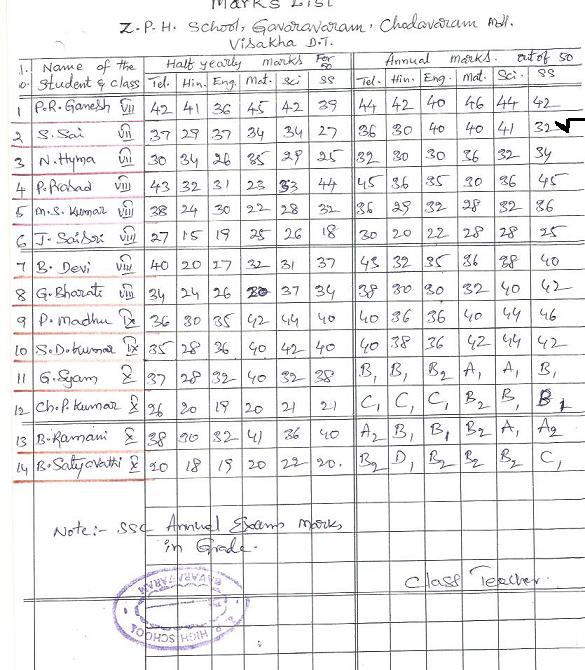 Marks List
Z.P.H. School, Gavaravaram, Chodavaram Mdl.
Visakha D.T.
Name of the Half yearly marks For 50 Annual marks. out of 50
Student & class Tel. Hin. Eng. Mat. Sci SS Tel. Hin. Eng. Mat. Sci. SS
1 P.R. Ganesh VII 42 41 36 45 42 39 44 42 40 46 44 42
2 S. Sai VII 37 29 37 34 34 27 36 30 40 40 41 32
3 N. Hyma VII 30 34 26 35 29 25 32 30 30 36 32 34
4 P. Prasad VII 43 32 31 23 33 44 45 36 35 30 36 45
5 M.S. Kumar VIII 38 24 30 22 28 32 36 29 32 28 32 36
6 J. SaiSri VIII 27 15 19 25 26 18 30 20 22 28 28 25
7 B. Devi VIII 40 20 27 32 31 37 43 32 35 36 38 40
8 G. Bharati VIII 34 24 26 37 34 38 30 30 32 40 42
9 P. Madhu IX 36 30 35 42 44 40 40 36 36 40 44 46
10 S.D. Kumar IX 35 28 36 40 42 40 40 38 36 42 44 42
11 G. Syam X 37 28 32 40 32 38 B1 B1 B2 A1 A1 B1
12 Ch.P. Kumar X 26 20 19 20 21 21 C1 C1 C1 B2 B1 B1
13 B. Ramani X 38 30 32 41 36 40 A2 B1 B1 B2 A1 A2
14 B. Satyavathi X 20 18 19 20 22 20. B2 D1 B2 B2 B2 C1
Note:- SSC Annual Exams marks
in Grade.
Class Teacher.
HIGH SCHOOL
GAVARAVARAM